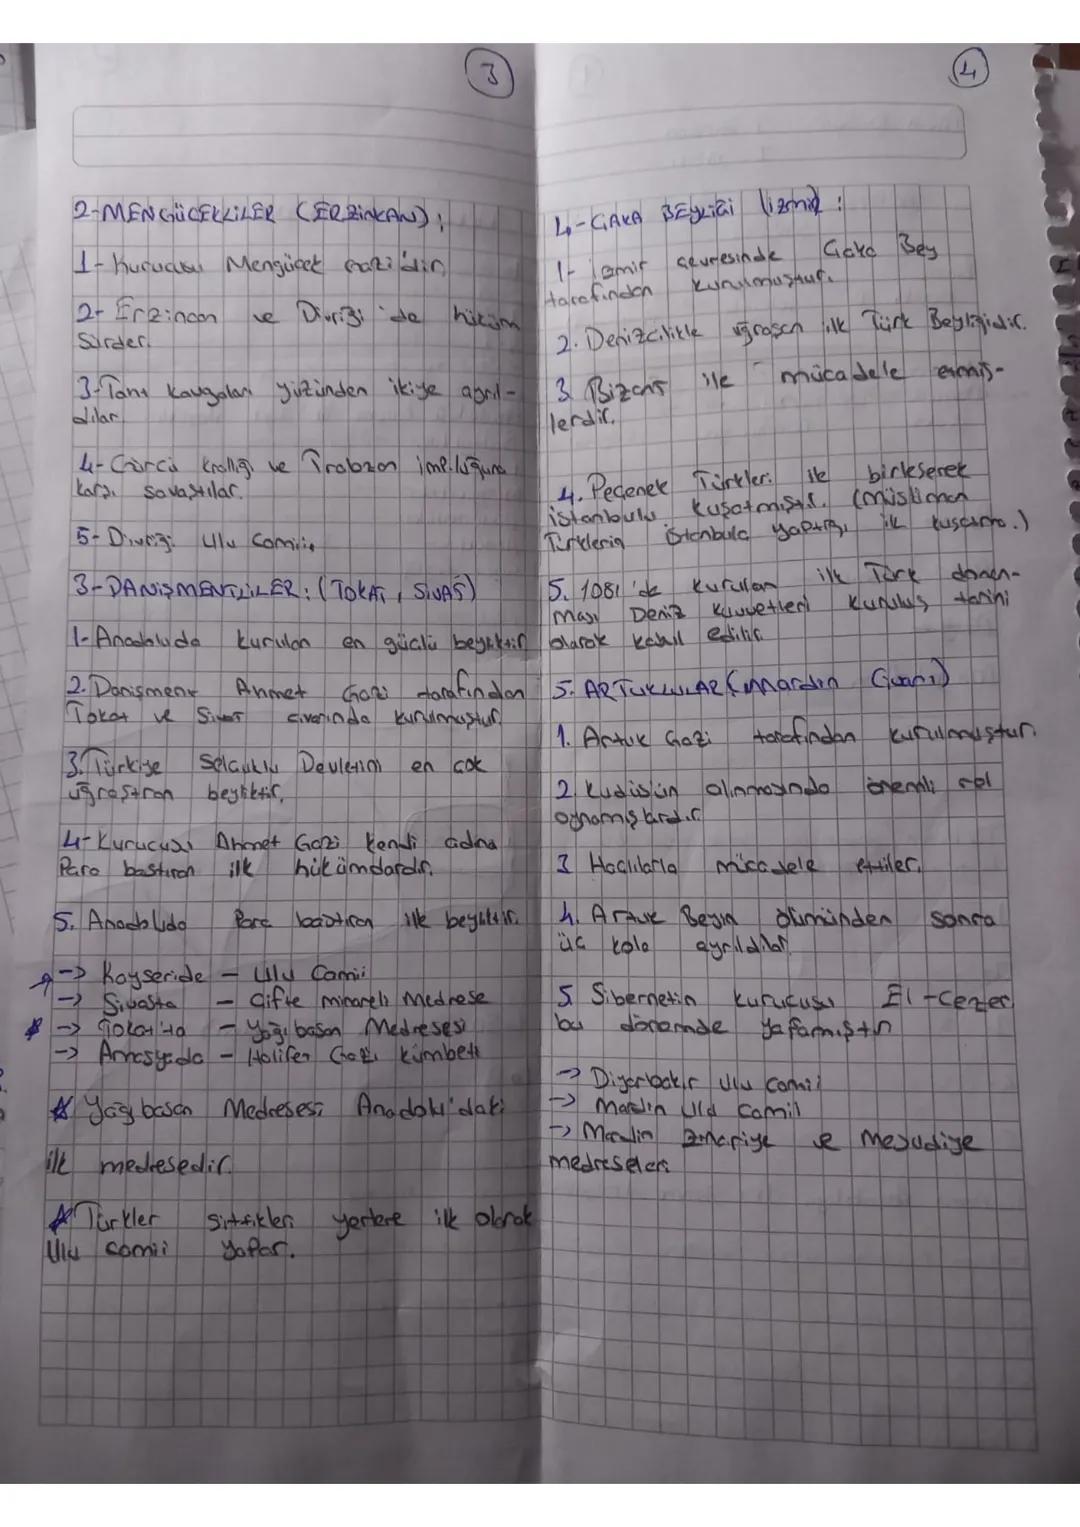 3
2-MENGÜCEKLİLER (ERZİNKAN);
1- Kurucusu Mengücek Gazi'dir.
2- Erzincan ve Divriği'de hüküm
Sürder.
3-Taht kavgaları yüzünden ikiye ayrıl-
dılar.
4-Gürcü krallığı ve Trabzon imp.luğuna
karşı savaştılar.
5- Divriği Ulu Camii.
3-DANİŞMENTLİLER: (TOKAT, SİVAS)
1-Anadoluda kurulan en güçlü beyliktir
2. Danişment Ahmet Gazi tarafından
Tokat ve Sivas civarında kurulmuştur.
3. Türkiye Selçuklu Devletini en çok
uğraştıran beyliktir.
4-Kurucusu Ahmet Gazi kendi adına
Para bastıran ilk hükümdardır.
5. Anadoluda Para bastıran ilk beyliktir.
-> Kayseride - Ulu Camii
-> Sivasta - Çifte minareli Medrese
-> Tokat'ta - Yağıbasan Medresesi
-> Amasyada - Halifet Gazi Kümbeti
Yağıbasan Medresesi Anadolu'daki
ilk medresedir.
Türkler gittikleri yerlere ilk olarak
Ulu camii yapar.
4
4-ÇAKA BEYLİĞİ (İzmir):
1- İzmir çevresinde Çaka Bey
tarafından kurulmuştur.
2. Denizcilikle uğraşan ilk Türk Beyliğidir.
3. Bizans ile mücadele etmiş-
lerdir.
4. Peçenek Türkleri ile birleşerek
istanbulu kuşatmıştır. (Müslüman
Türklerin İstanbula yaptığı ilk kuşatma.)
5. 1081'de kurulan ilk Türk donan-
ması Deniz kuvvetleri kuruluş tarihi
olarak kabul edilir.
5. ARTUKLULAR (Mardin Civarı)
1. Artuk Gazi tarafından kurulmuştur.
2. Kudüsün alınmasında önemli rol
oynamışlardır.
3 Haçlılarla mücadele ettiler.
4. Artuk Beyin ölümünden sonra
üç kola ayrıldılar.
5. Sibernetin kurucusu El-Cezeri
bu dönemde yaşamıştır
-> Diyarbakır Ulu Camii
-> Mardin Ulu Camii
-> Mardin Zinciriye ve Mesudiye
medreseleri